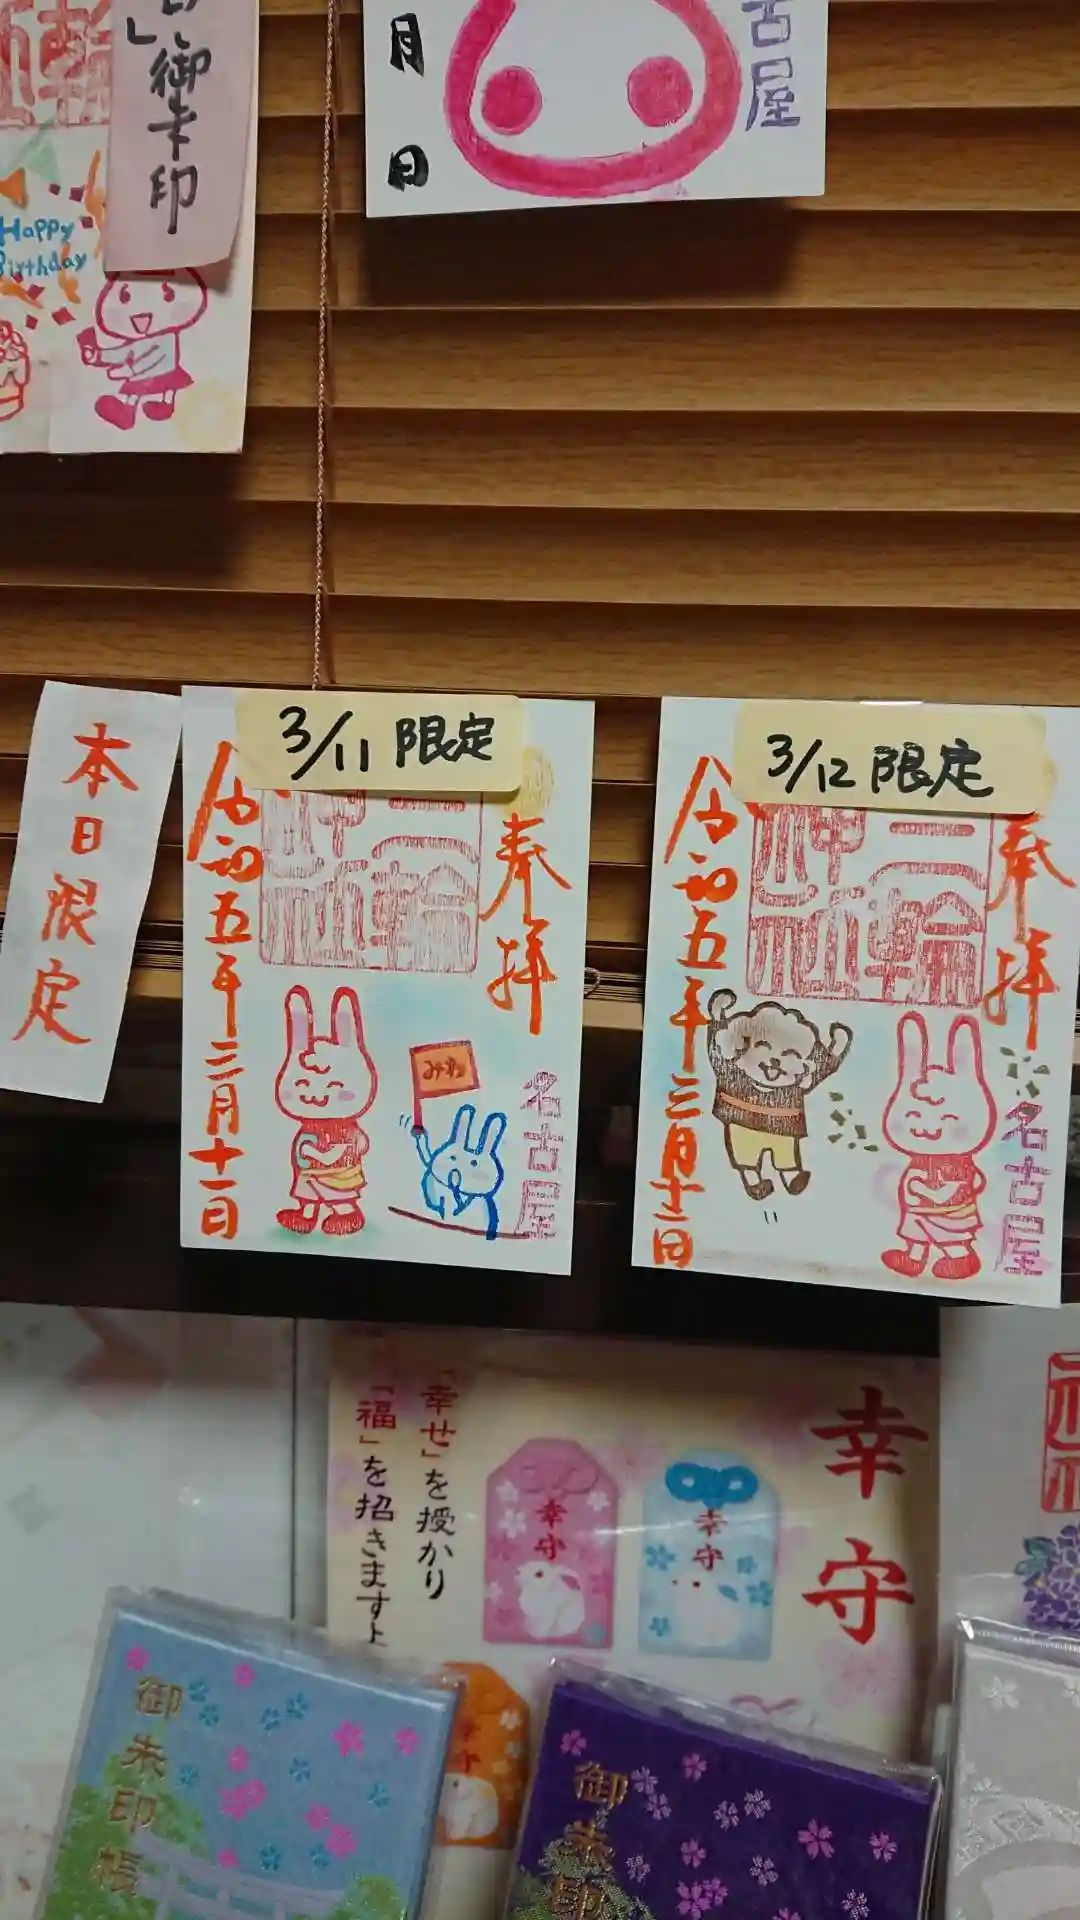 御朱印
Happy
Birthday
月
日
古屋
本日限定
3/11 限定
奉拝
三輪
神社
令和五年三月十一日
みわ
名古屋
3/12 限定
奉拝
三輪
神社
令和五年三月十二日
名古屋
幸守
「幸せ」を授かり
「福」を招きます
幸守
幸守
幸守
御朱印帳
御朱印